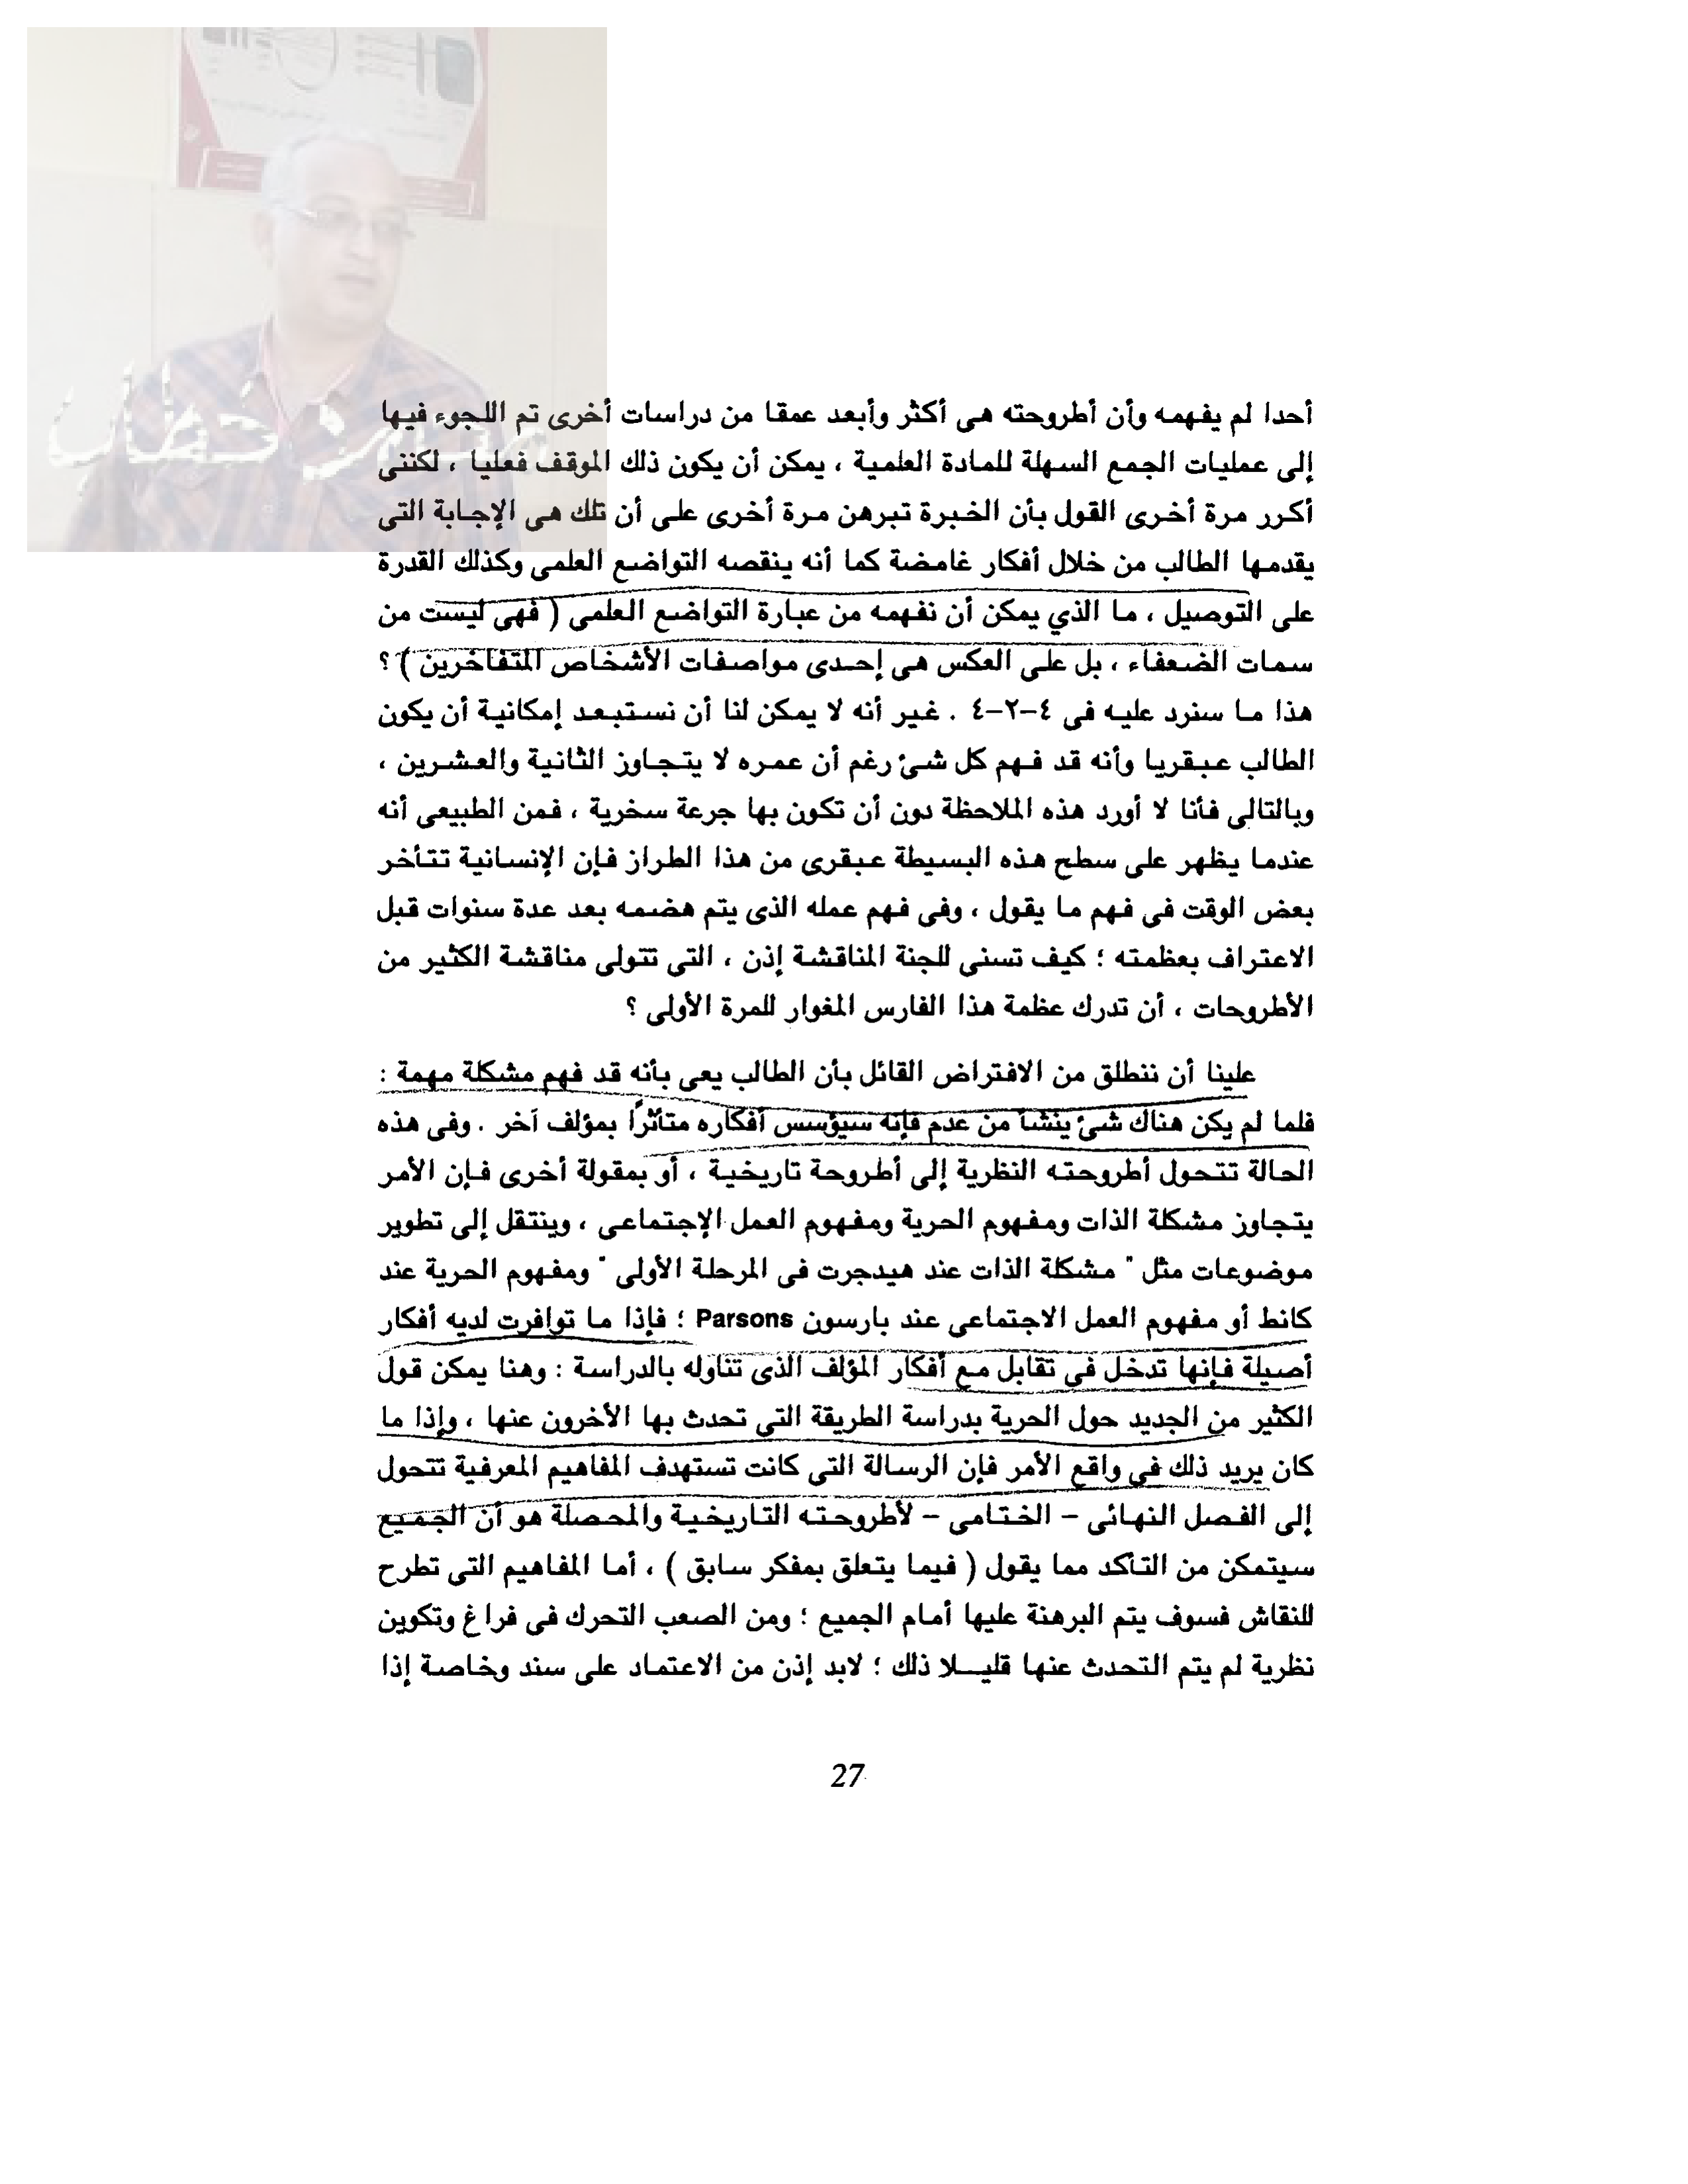 أحدا لم يفهمه وأن أطروحته هى أكثر وأبعد عمقا من دراسات أخرى تم اللجوء فيها
إلى عمليات الجمع السهلة للمادة العلمية ، يمكن أن يكون ذلك الموقف فعليا ، لكننى
أكرر مرة أخرى القول بأن الخبرة تبرهن مرة أخرى على أن تلك هى الإجابة التى
يقدمها الطالب من خلال أفكار غامضة كما أنه ينقصه التواضع العلمى وكذلك القدرة
على التوصيل ، ما الذي يمكن أن نفهمه من عبارة التواضع العلمى ( فهى ليست من
سمات الضعفاء ، بل على العكس هى إحدى مواصفات الأشخاص المتفاخرين ) ؟
هذا ما سنرد عليه فى ٤-٢-٤ . غير أنه لا يمكن لنا أن نستبعد إمكانية أن يكون
الطالب عبقريا وأنه قد فهم كل شئ رغم أن عمره لا يتجاوز الثانية والعشرين ،
وبالتالى فأنا لا أورد هذه الملاحظة دون أن تكون بها جرعة سخرية ، فمن الطبيعى أنه
عندما يظهر على سطح هذه البسيطة عبقرى من هذا الطراز فإن الإنسانية تتأخر
بعض الوقت فى فهم ما يقول ، وفى فهم عمله الذى يتم هضمه بعد عدة سنوات قبل
الاعتراف بعظمته ؛ كيف تسنى للجنة المناقشة إذن ، التى تتولى مناقشة الكثير من
الأطروحات ، أن تدرك عظمة هذا الفارس المغوار للمرة الأولى ؟
علينا أن ننطلق من الافتراض القائل بأن الطالب يعى بأنه قد فهم مشكلة مهمة :
فلما لم يكن هناك شئ ينشأ من عدم فإنه سيؤسس أفكاره متأثرًا بمؤلف آخر . وفى هذه
الحالة تتحول أطروحته النظرية إلى أطروحة تاريخية ، أو بمقولة أخرى فإن الأمر
يتجاوز مشكلة الذات ومفهوم الحرية ومفهوم العمل الإجتماعى ، وينتقل إلى تطوير
موضوعات مثل " مشكلة الذات عند هيدجرت فى المرحلة الأولى " ومفهوم الحرية عند
كانط أو مفهوم العمل الاجتماعى عند بارسون Parsons ؛ فإذا ما توافرت لديه أفكار
أصيلة فإنها تدخل فى تقابل مع أفكار المؤلف الذى تناوله بالدراسة : وهنا يمكن قول
الكثير من الجديد حول الحرية بدراسة الطريقة التى تحدث بها الأخرون عنها ، وإذا ما
كان يريد ذلك فى واقع الأمر فإن الرسالة التى كانت تستهدف المفاهيم المعرفية تتحول
إلى الفصل النهائى – الختامى – لأطروحته التاريخية والمحصلة هو أن الجميع
سيتمكن من التأكد مما يقول ( فيما يتعلق بمفكر سابق ) ، أما المفاهيم التى تطرح
للنقاش فسوف يتم البرهنة عليها أمام الجميع ؛ ومن الصعب التحرك فى فراغ وتكوين
نظرية لم يتم التحدث عنها قليلا ذلك ؛ لابد إذن من الاعتماد على سند وخاصة إذا
27